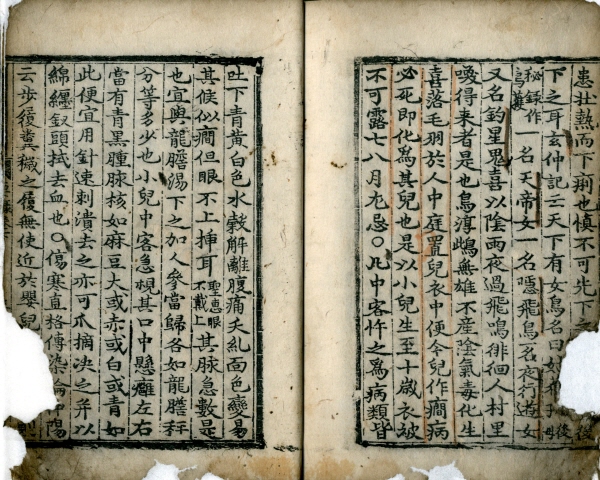 患壯熱而下痢也慎不可先下之
下之耳玄仲記云天下有女鳥名曰
秘錄作一名天帝女一名隱飛鳥名夜行遊女
又名釣星鬼喜以陰雨夜過飛鳴徘徊人村里
喚得来者是也鳥淳雌無雄不産陰氣毒化生
喜落毛羽於人中庭置兒衣中便令兒作癎病
必死即化爲其兒也是以小兒生至十歲衣被
不可露七八月尤忌○凡中客忤之爲病類皆
吐下青黄白色水穀解離腹痛夭糺面色變易
其候似癎但眼不上揷耳聖惠眼不戴上其脉急數是
也宜與龍膽湯下之加人參當歸各如龍膽秤
分等多少也小兒中客急視其口中懸癰左右
當有青黑腫脉核如麻豆大或赤或白或青如
此便宜用針速刺潰去之亦可爪摘決之并以
綿纏釵頭拭去血也○傷寒直格傳染論
云步履糞穢之履無使近於嬰兒